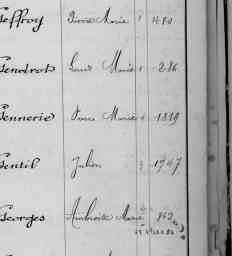 Geffroy Pierre Marie 1 480
Gendrot Louis Marie 1 286
Gennerie Pierre Marie 1819
Gentil Julien 3 1747
Georges Ambroise Marie 862